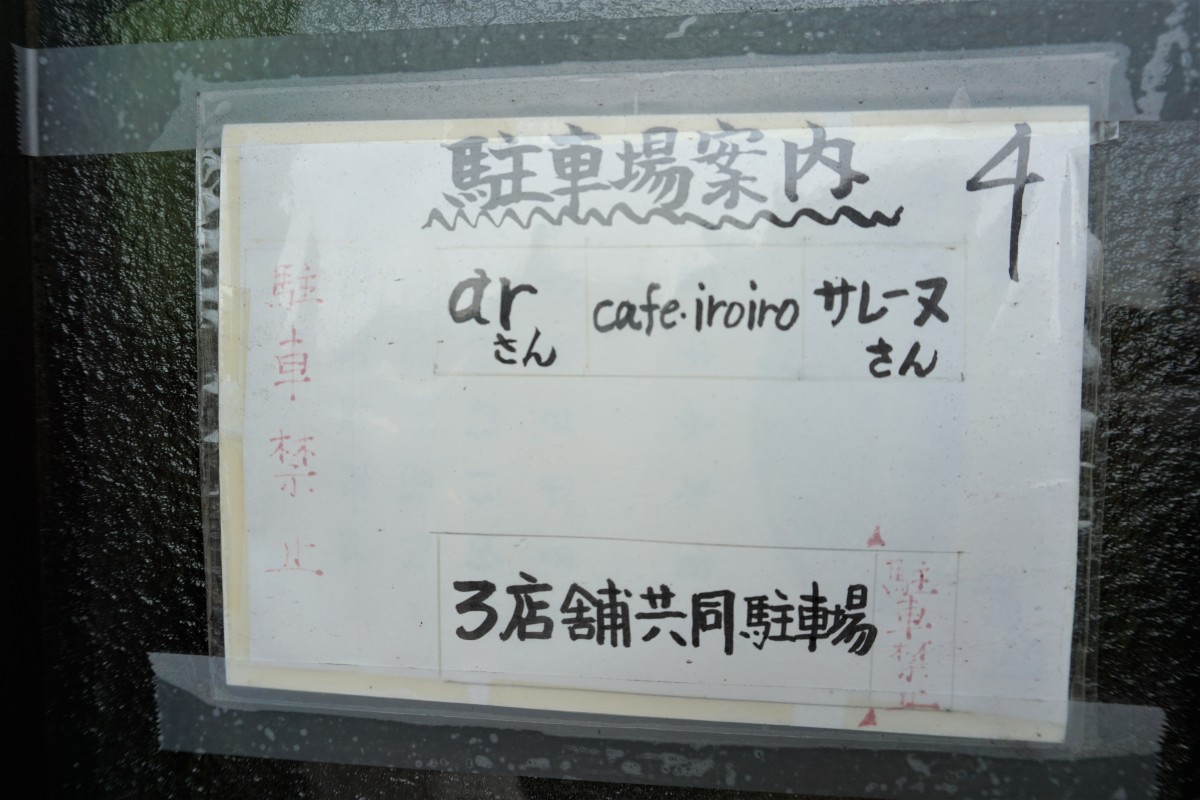 駐車場案内
4
ar
さん
cafe・iroiro
サレーヌ
さん
駐車禁止
3店舗共同駐車場
駐車禁止